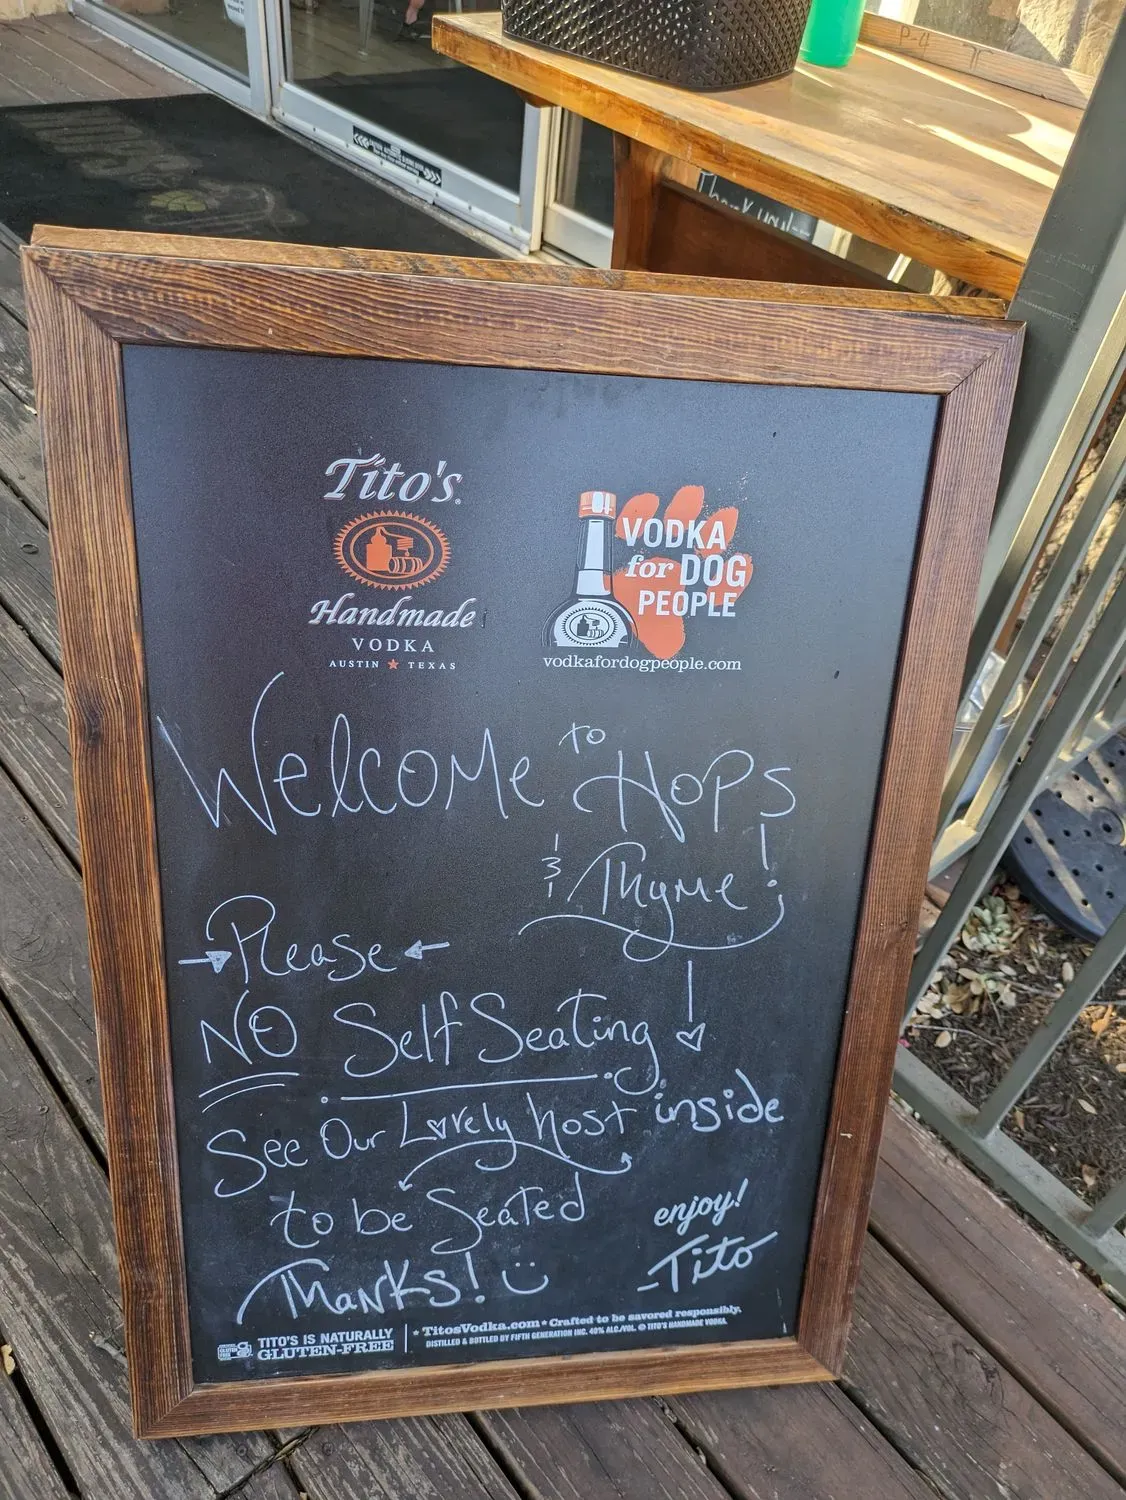 P-4
Thank you!
Tito's
Handmade
VODKA
AUSTIN ★ TEXAS
VODKA
for DOG
PEOPLE
vodkafordogpeople.com
Welcome to Hops
& Thyme!
→ Please ←
NO Self Seating
See Our Lovely host inside
to be Seated
Thanks!
enjoy!
-Tito
TITO'S IS NATURALLY
GLUTEN-FREE
* TitosVodka.com * Crafted to be savored responsibly.
DISTILLED & BOTTLED BY FIFTH GENERATION INC. 40% ALC./VOL. © TITO'S HANDMADE VODKA.